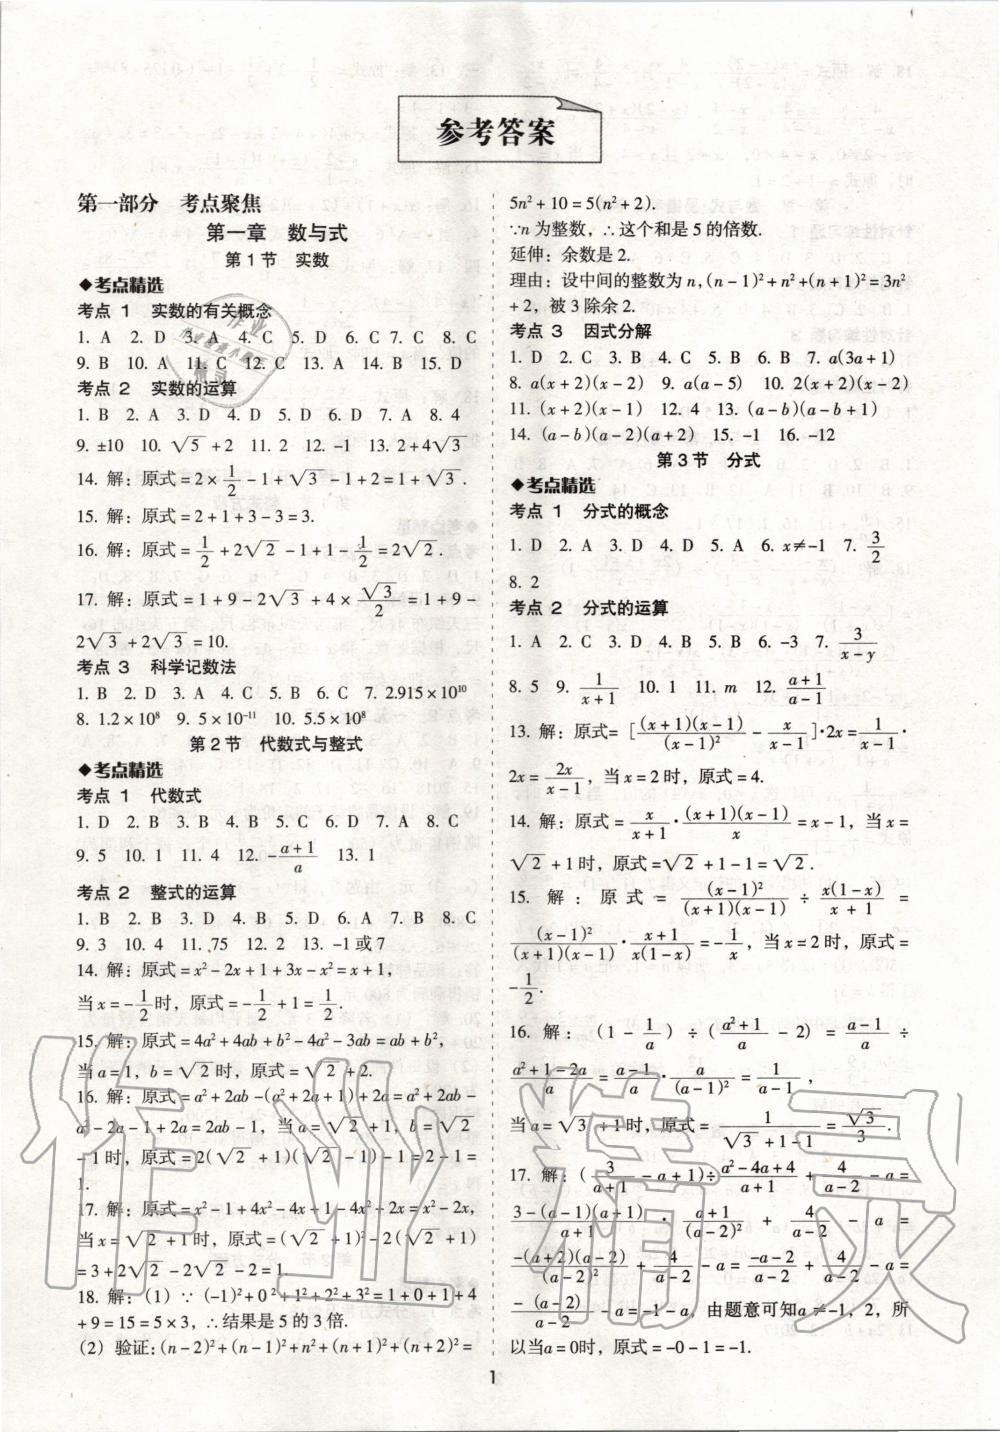 参考答案
第一部分 考点聚焦
第一章 数与式
第1节 实数
◆考点精选
考点 1 实数的有关概念
1. A 2. D 3. A 4. C 5. D 6. C 7. C 8. C
9. B 10. A 11. C 12. C 13. A 14. B 15. D
考点 2 实数的运算
1. B 2. A 3. D 4. D 5. D 6. D 7. A 8. 4
9. ±10 10. √5 +2 11. 2 12. -1 13. 2+4√3
14. 解：原式=2×1/2-1+√3-1+2=1+√3.
15. 解：原式=2+1+3-3=3.
16. 解：原式=1/2+2√2-1+1-1/2=2√2.
17. 解：原式=1+9-2√3+4×√3/2=1+9-
2√3+2√3=10.
考点 3 科学记数法
1. B 2. D 3. A 4. C 5. B 6. C 7. 2.915×10¹⁰
8. 1.2×10⁸ 9. 5×10⁻¹¹ 10. 5.5×10⁸
第2节 代数式与整式
◆考点精选
考点 1 代数式
1. D 2. B 3. B 4. B 5. C 6. D 7. A 8. C
9. 5 10. 1 11. 4 12. -(a+1)/a 13. 1
考点 2 整式的运算
1. B 2. B 3. D 4. B 5. D 6. A 7. B 8. C
9. 3 10. 4 11. 75 12. 2 13. -1或7
14. 解：原式=x²-2x+1+3x-x²=x+1,
当x=-1/2时，原式=-1/2+1=1/2.
15. 解：原式=4a²+4ab+b²-4a²-3ab=ab+b²,
当a=1，b=√2时，原式=√2+2.
16. 解：原式=a²+2ab-(a²+2a+1)+2a=a²+2ab-
a²-2a-1+2a=2ab-1，当a=√2+1，b=√2
-1时，原式=2(√2+1)(√2-1)-1=2-1=
1.
17. 解：原式=x²-1+4x²-4x+1-4x²+2x=x²-2x,
当x=√2+1时，原式=(√2+1)²-2(√2+1)
=3+2√2-2√2-2=1.
18. 解：(1) ∵(-1)²+0²+1²+2²+3²=1+0+1+4
+9=15=5×3，∴结果是5的3倍.
(2) 验证：(n-2)²+(n-1)²+n²+(n+1)²+(n+2)²=
5n²+10=5(n²+2).
∵n为整数，∴这个和是5的倍数.
延伸：余数是2.
理由：设中间的整数为n，(n-1)²+n²+(n+1)²=3n²
+2，被3除余2.
考点 3 因式分解
1. D 2. C 3. B 4. C 5. B 6. B 7. a(3a+1)
8. a(x+2)(x-2) 9. a(a-5) 10. 2(x+2)(x-2)
11. (x+2)(x-1) 12. 4 13. (a-b)(a-b+1)
14. (a-b)(a-2)(a+2) 15. -1 16. -12
第3节 分式
◆考点精选
考点 1 分式的概念
1. D 2. A 3. D 4. D 5. A 6. x≠-1 7. 3/2
8. 2
考点 2 分式的运算
1. A 2. C 3. D 4. B 5. B 6. -3 7. 3/(x-y)
8. 5 9. 1/(x+1) 10. 1 11. m 12. (a+1)/(a-1)
13. 解：原式=[(x+1)(x-1)/(x-1)²-x/(x-1)]·2x=1/(x-1)·
2x=2x/(x-1)，当x=2时，原式=4.
14. 解：原式=x/(x+1)·(x+1)(x-1)/x=x-1，当x=
√2+1时，原式=√2+1-1=√2.
15. 解：原式=(x-1)²/(x+1)(x-1)÷x(1-x)/(x+1)=
(x-1)²/(x+1)(x-1)·(x+1)/x(1-x)=-1/x，当x=2时，原式=
-1/2.
16. 解：(1-1/a)÷((a²+1)/a-2)=(a-1)/a÷
(a²+1-2a)/a=(a-1)/a·a/(a-1)²=1/(a-1),
当a=√3+1时，原式=1/(√3+1-1)=√3/3.
17. 解：(3/(a+1)-a+1)÷(a²-4a+4)/(a+1)+4/(a-2)-a=
(3-(a-1)(a+1))/(a+1)·(a+1)/(a-2)²+4/(a-2)-a=
-(a+2)(a-2)/(a-2)²+4/(a-2)-a=(-a-2)/(a-2)+4/(a-2)-a=
-(a-2)/(a-2)-a=-1-a，由题意可知a≠-1，2，所
以当a=0时，原式=-0-1=-1.
1
作业精灵